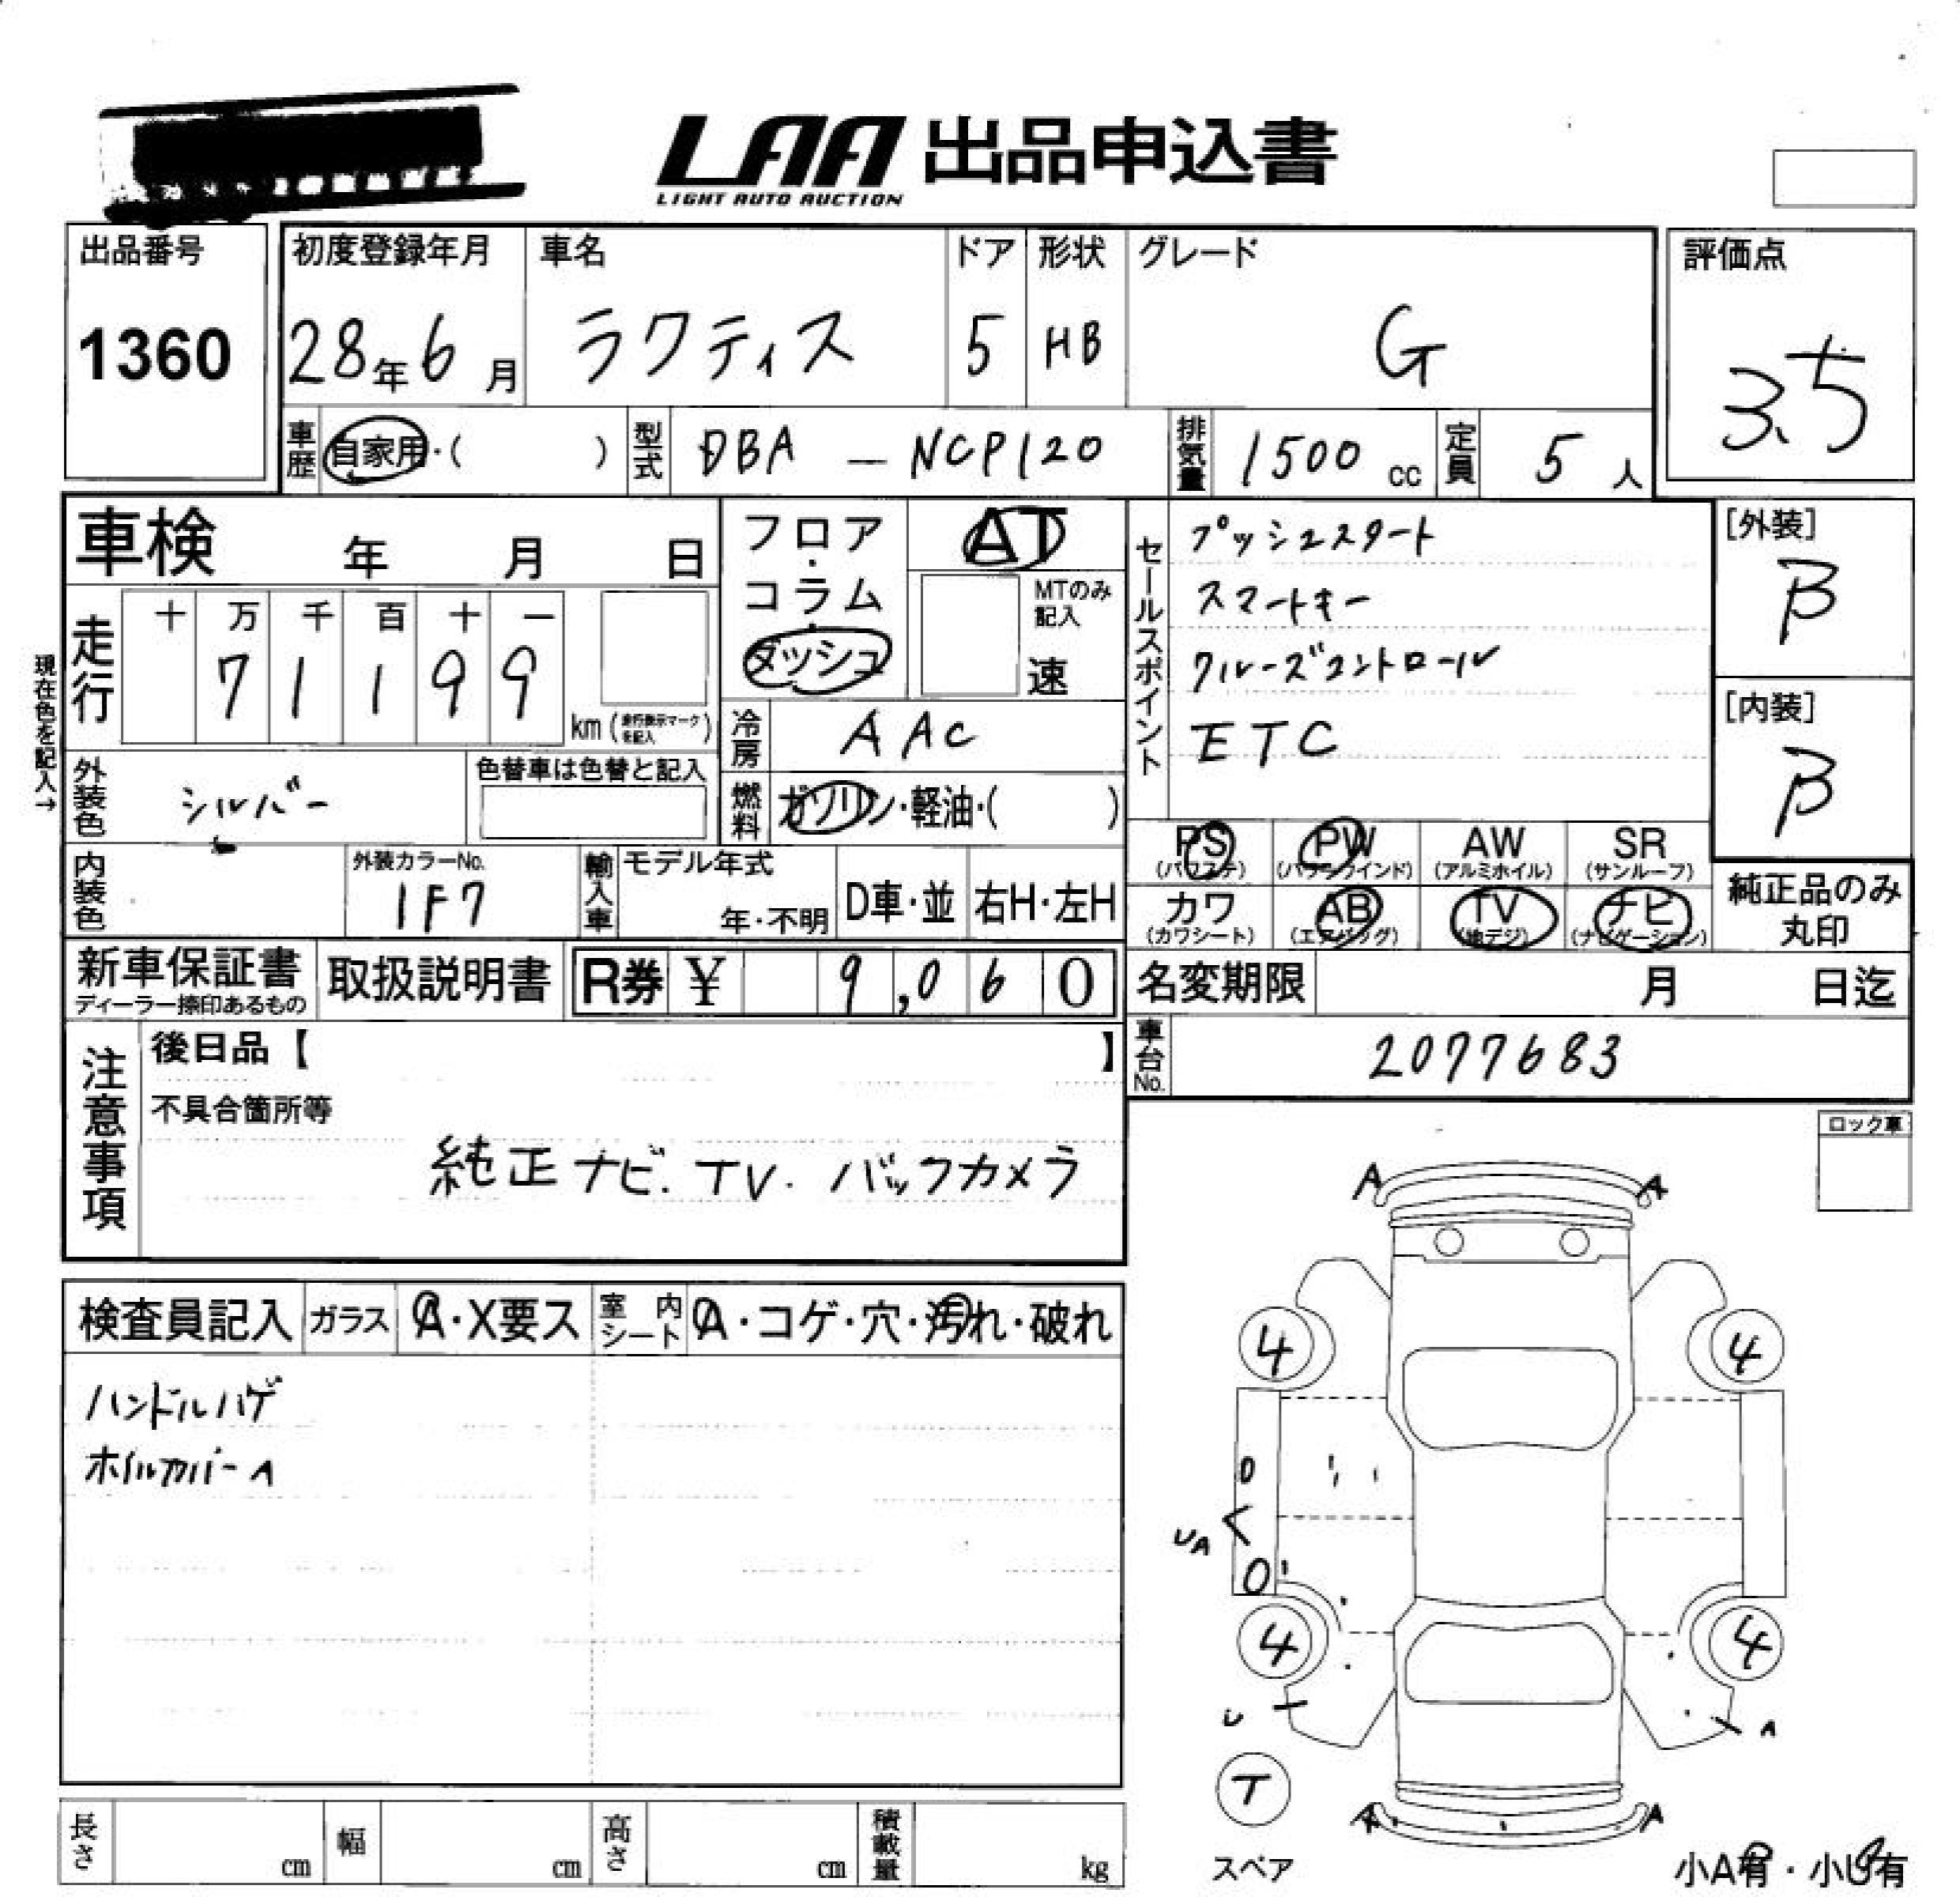 LAA 出品申込書
LIGHT AUTO AUCTION
出品番号
1360
初度登録年月
28年6月
車名
ラクティス
ドア
5
形状
HB
グレード
G
評価点
3.5
車歴
自家用・( )
型式
DBA - NCP120
排気量
1500 cc
定員
5 人
車検 年 月 日
フロア・コラム・ダッシュ
AT
MTのみ記入
速
走行
十 万 千 百 十 一
7 1 1 9 9
km(走行表示マークを記入)
現在色を記入→
冷房
AAC
外装色
シルバー
色替車は色替と記入
燃料
ガソリン・軽油・( )
内装色
外装カラーNo.
1F7
輸入車
モデル年式
年・不明
D車・並
右H・左H
セールスポイント
プッシュスタート
スマートキー
クルーズコントロール
ETC
[外装]
B
[内装]
B
PS (パワステ)
PW (パワーウインド)
AW (アルミホイル)
SR (サンルーフ)
カワ (カワシート)
AB (エアバッグ)
TV (地デジ)
ナビ (ナビゲーション)
純正品のみ
丸印
新車保証書
ディーラー捺印あるもの
取扱説明書
R券 ¥ 9,060
名変期限 月 日迄
車台No.
2077683
注意事項
後日品【 】
不具合箇所等
純正ナビ.TV.バックカメラ
ロック車
検査員記入
ガラス
A・X要ス
室内シート
A・コゲ・穴・汚れ・破れ
ハンドルハゲ
ホイルカバーA
A A
4 4
UA
4 4
U A
T
スペア
A A
小A有・小U有
長さ cm
幅 cm
高さ cm
積載量 kg